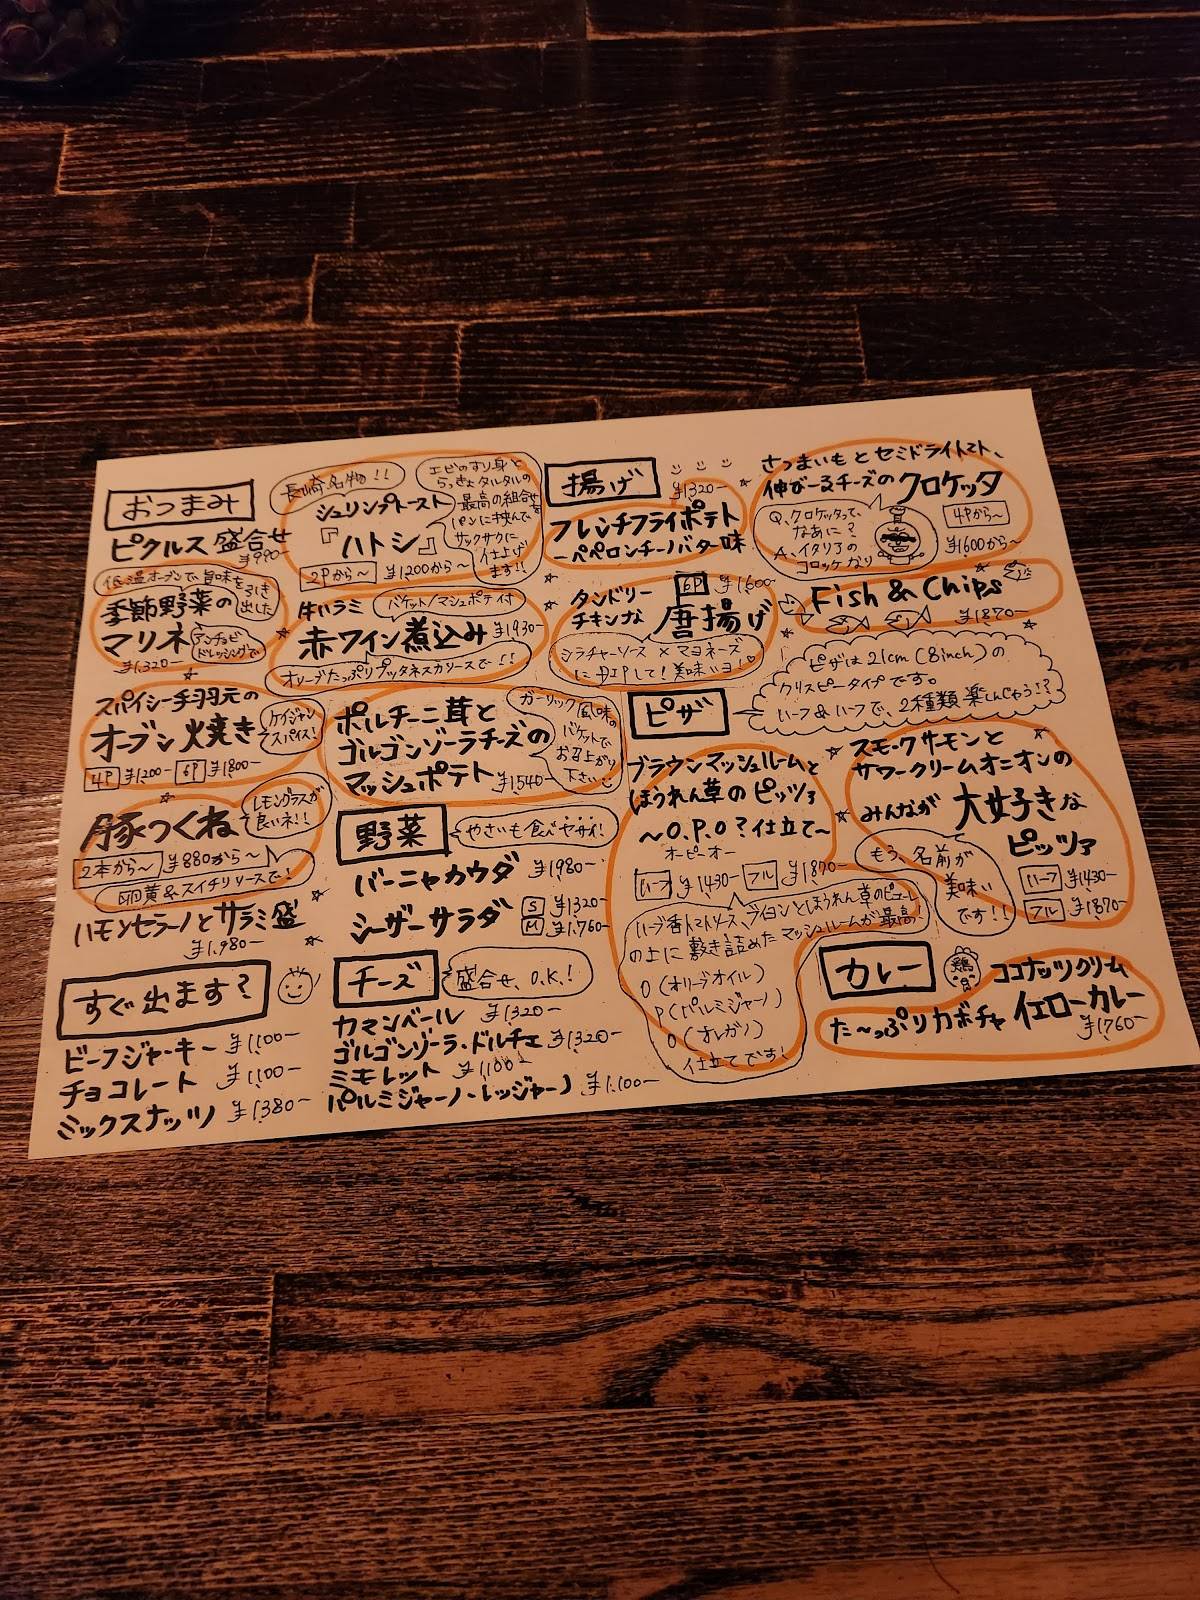 おつまみ
ピクルス盛合せ
¥990-
低温オーブンで旨味を引き出した
季節野菜の
マリネ
アンチョビ
ドレッシングで
¥1,320-
スパイシー手羽元の
オーブン焼き
ケイジャン
スパイス!
4P ¥1200- 6P ¥1800-
豚つくね
レモングラスが
良いネ!!
2本から〜 ¥880から〜
卵黄&スイチリソースで!
ハモンセラーノとサラミ盛
¥1,980-
すぐ出ます?
ビーフジャーキー ¥1,100-
チョコレート ¥1,100-
ミックスナッツ ¥1,380-
長崎名物!!
シュリンプトースト
『ハトシ』
2Pから〜 ¥1200から〜
エビのすり身と
らっきょタルタルの
最高の組合せを
パンに挟んで
サックサクに
仕上げ
ます!!
牛ハラミ
バケット/マッシュポテイ付
赤ワイン煮込み ¥1930-
オリーブたっぷりプッタネスカソースで!!
ポルチーニ茸と
ゴルゴンゾーラチーズの
マッシュポテト ¥1540-
ガーリック風味の
バケットで
お召上がり
下さい
野菜
やさいも食べヤサイ!
バーニャカウダ ¥1980-
シーザーサラダ S ¥1320-
M ¥1,760-
チーズ
盛合せ、O.K.!
カマンベール ¥1320-
ゴルゴンゾーラ・ドルチェ ¥1320-
ミモレット ¥1,100-
パルミジャーノ・レッジャーノ ¥1,100-
揚げ
¥1320-
フレンチフライポテト
〜ペペロンチーノバター味
タンドリー
チキンな
6P ¥1,600-
唐揚げ
シラチャーソース×マヨネーズ
にDIPして!美味いヨ!
さつまいもとセミドライトマト、
伸びーるチーズのクロケッタ
Q、クロケッタって、
なあに?
A、イタリアの
コロッケなり
4Pから〜
¥1600から〜
Fish & Chips
¥1870-
ピザ
ピザは21cm(8inch)の
クリスピータイプです。
ハーフ&ハーフで、2種類楽しんじゃう!?
ブラウンマッシュルームと
ほうれん草のピッツァ
〜O.P.O?仕立て〜
オーピーオー
ハーフ ¥1430- フル ¥1870-
ハーブ香トマトソース、ブイヨンとほうれん草のピューレ
の上に敷き詰めたマッシュルームが最高!
O(オリーブオイル)
P(パルミジャーノ)
O(オレガノ)
仕立てです!
スモークサーモンと
サワークリームオニオンの
みんなが大好きな
ピッツァ
もう、名前が
美味い
です!!
ハーフ ¥1430-
フル ¥1870-
カレー
鶏
ココナッツクリーム
た〜っぷりカボチャイエローカレー
¥1,760-